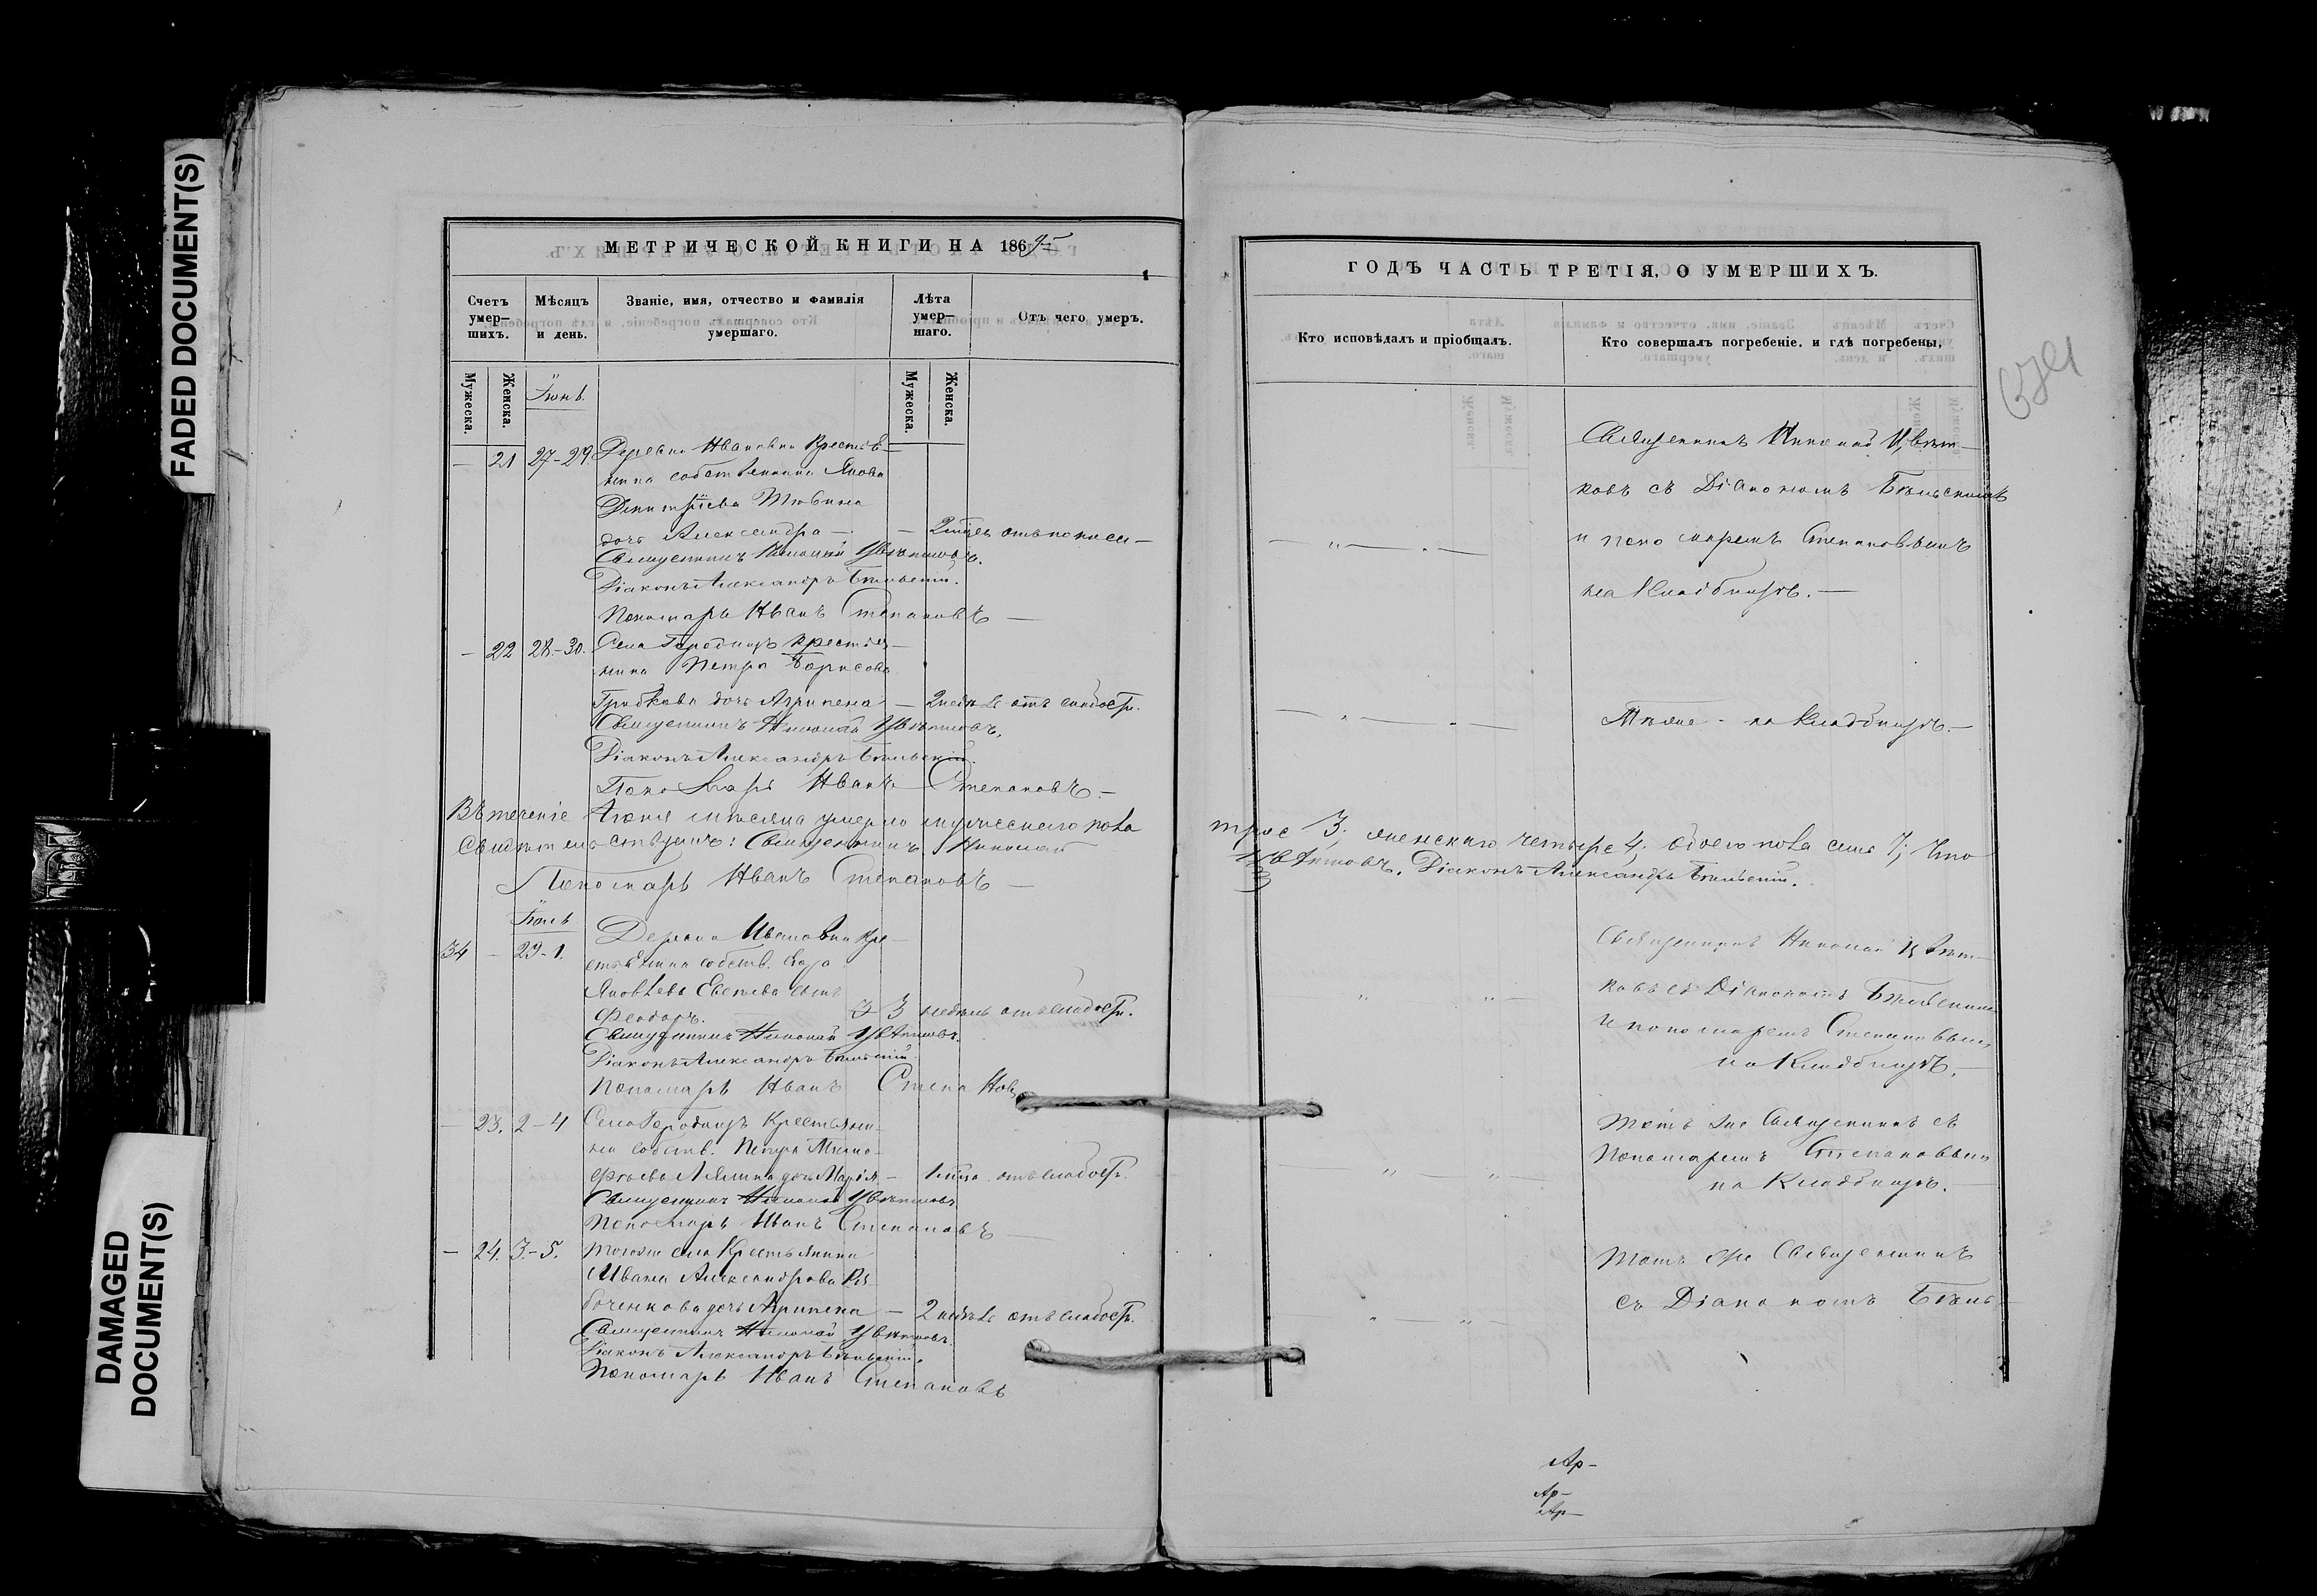 FADED DOCUMENT(S)
DAMAGED
DOCUMENT(S)
МЕТРИЧЕСКОЙ КНИГИ НА 186
Счетъ умер-шихъ.
Мѣсяцъ и день.
Званіе, имя, отчество и фамилія умершаго.
Лѣта умер-шаго.
Отъ чего умеръ.
Мужеска.
Женска.
Мужеска.
Женска.
— 21 27-29. Деревни Ивановки Крестья-
нина собственника Якова
Димитріева
дочь Александра — —
Священникъ Николай Цвѣтковъ.
Діаконъ Александръ Бѣльскій.
Пономарь Иванъ Степановъ —
— 22 28-30. Села Городищъ крестья-
нина Петра Борисова
Грибкова дочь Агрипена — 2 недѣль отъ слабости.
Священникъ Николай Цвѣтковъ.
Діаконъ Александръ Бѣльскій.
Пономарь Иванъ Степановъ. —
Въ теченіе Іюня мѣсяца умерло мужескаго пола
Свидѣтельствуемъ: Священникъ Николай
Пономарь Иванъ Степановъ —
Іюль
34 — 29-1. Деревни Ивановки Кре-
стьянина собств.
Яковлева сынъ
Феодоръ. 3 недѣль отъ слабости.
Священникъ Николай Цвѣтковъ.
Діаконъ Александръ Бѣльскій.
Пономарь Иванъ Степановъ
— 23. 2-4 Села Городищъ Крестьяни-
на собств. Петра Тимо-
феева дочь Марія — отъ слабости.
Священникъ Николай Цвѣтковъ
Пономарь Иванъ Степановъ —
— 24. 3-5. Тогоже села Крестьянина
Ивана Александрова Ря-
боченкова дочь Агрипена — 2 недѣль отъ слабости.
Священникъ Николай Цвѣтковъ.
Діаконъ Александръ Бѣльскій.
Пономарь Иванъ Степановъ
ГОДЪ ЧАСТЬ ТРЕТІЯ, О УМЕРШИХЪ.
Кто исповѣдалъ и пріобщалъ.
Кто совершалъ погребеніе, и гдѣ погребены,
Священникъ Николай Цвѣт-
ковъ съ Діакономъ Бѣльскимъ
и пономаремъ Степановымъ
на Кладбищѣ. —
Тѣже — на Кладбищѣ. —
трое 3; женскаго четыре 4; обоего пола семь 7; Что
Цвѣтковъ. Діаконъ Александръ Бѣльскій.
Священникъ Николай Цвѣт-
ковъ съ Діакономъ Бѣльскимъ
и пономаремъ Степановымъ
на Кладбищѣ. —
Тотъ же Священникъ съ
Пономаремъ Степановымъ
на Кладбищѣ. —
Тотъ же Священникъ
съ Діакономъ Бѣль-
Ар-
Ар-
Ар-